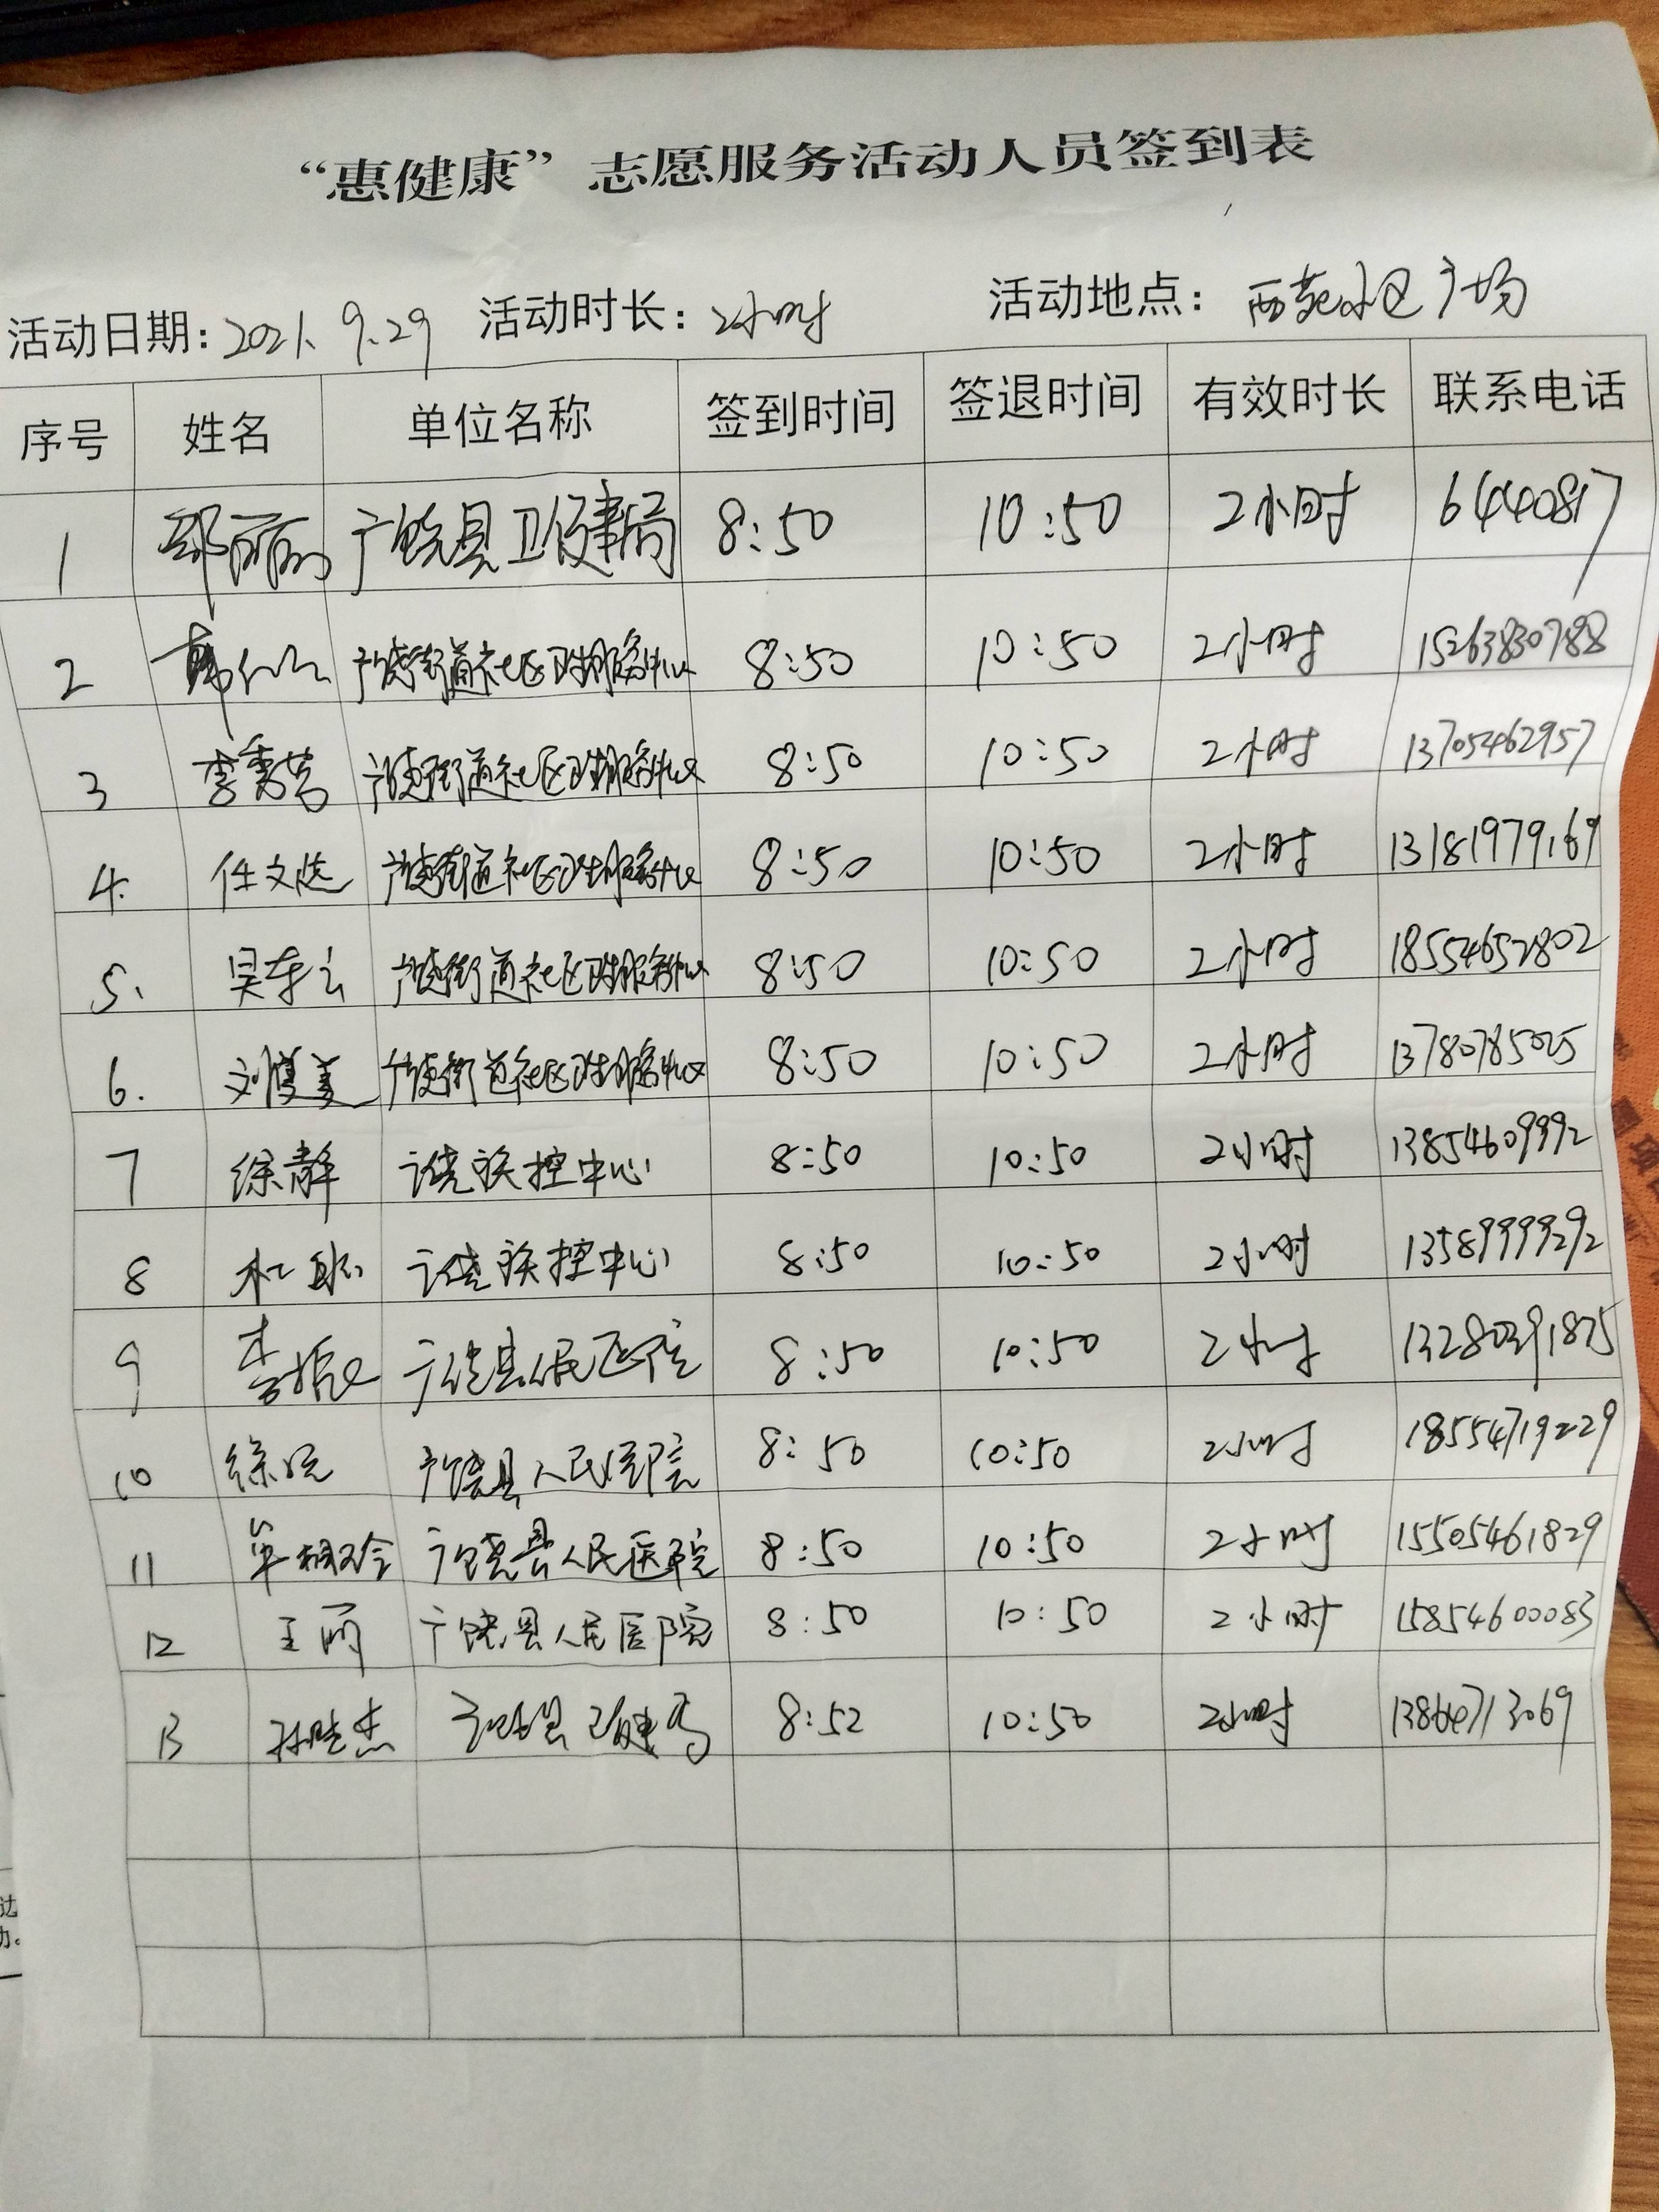 “惠健康”志愿服务活动人员签到表
活动日期：2021.9.29 活动时长：2小时 活动地点：西苑小区广场
序号 姓名 单位名称 签到时间 签退时间 有效时长 联系电话
1 广饶县卫健局 8:50 10:50 2小时 6440817
2 广饶街道社区卫生服务中心 8:50 10:50 2小时 15263830788
3 李秀芸 广饶街道社区卫生服务中心 8:50 10:50 2小时 13705462957
4. 任文选 广饶街道社区卫生服务中心 8:50 10:50 2小时 13181979169
5. 吴东云 广饶街道社区卫生服务中心 8:50 10:50 2小时 18554652802
6. 刘曼美 广饶街道社区卫生服务中心 8:50 10:50 2小时 13780785025
7 徐静 广饶疾控中心 8:50 10:50 2小时 13854609992
8 广饶疾控中心 8:50 10:50 2小时 13589999292
9 广饶县人民医院 8:50 10:50 2小时 13280391875
10 广饶县人民医院 8:50 10:50 2小时 18554719229
11 广饶县人民医院 8:50 10:50 2小时 15505461829
12 王丽 广饶县人民医院 8:50 10:50 2小时 15854600083
13 孙胜杰 广饶县卫健局 8:52 10:50 2小时 13864713069